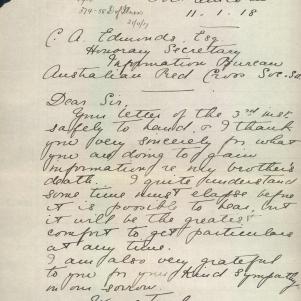 11.1.18
C A Edmunds, Esq
Honorary Secretary
Information Bureau
Australian Red Cross Soc.
Dear Sir,
Your letter of the 3rd inst
safely to hand, & I thank
you very sincerely for what
you are doing to gain
information re my brother's
death. I quite understand
some time must elapse before
it is possible to hear, but
it will be the greatest
comfort to get particulars
at any time.
I am also very grateful
to you for your kind sympathy
in our sorrow.